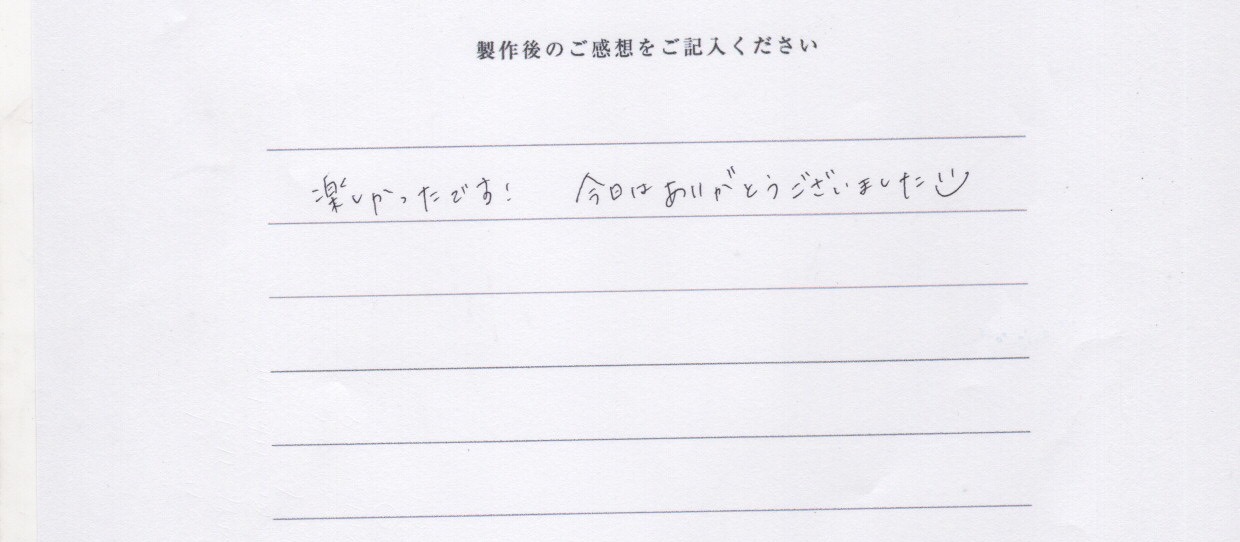 製作後のご感想をご記入ください
楽しかったです! 今日はありがとうございました